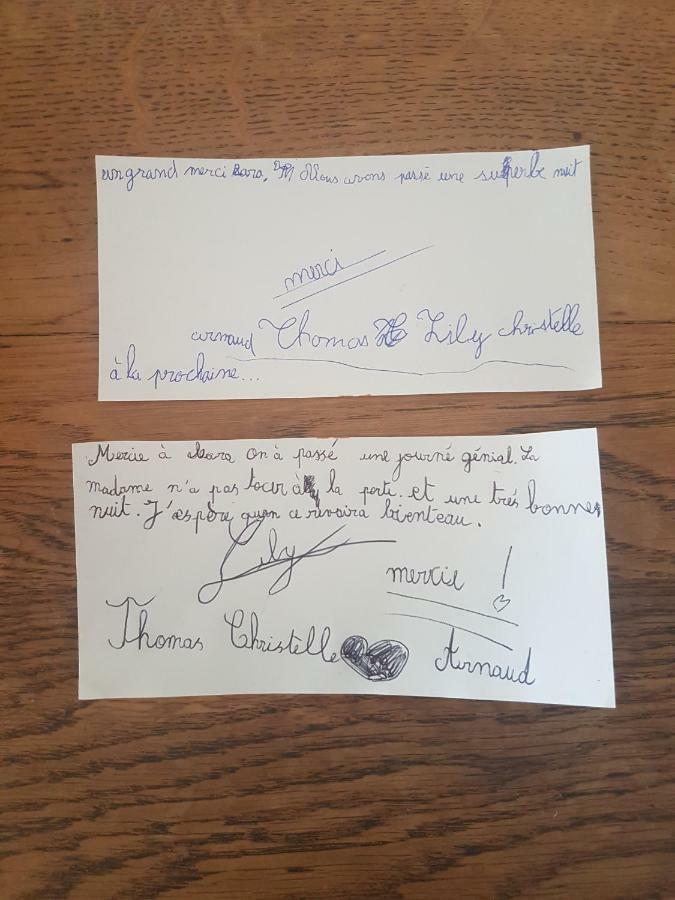 un grand merci Bara, Nous avons passé une superbe nuit
merci
arnaud Thomas Lily christelle
à la prochaine...
Mercie à Bara on à passé une journé génial. La
madame n'a pas tocer à la porte. et une trés bonnes
nuit. J'æspère quon ce revoira bienteau.
Lily
mercie !
Thomas Christelle Arnaud